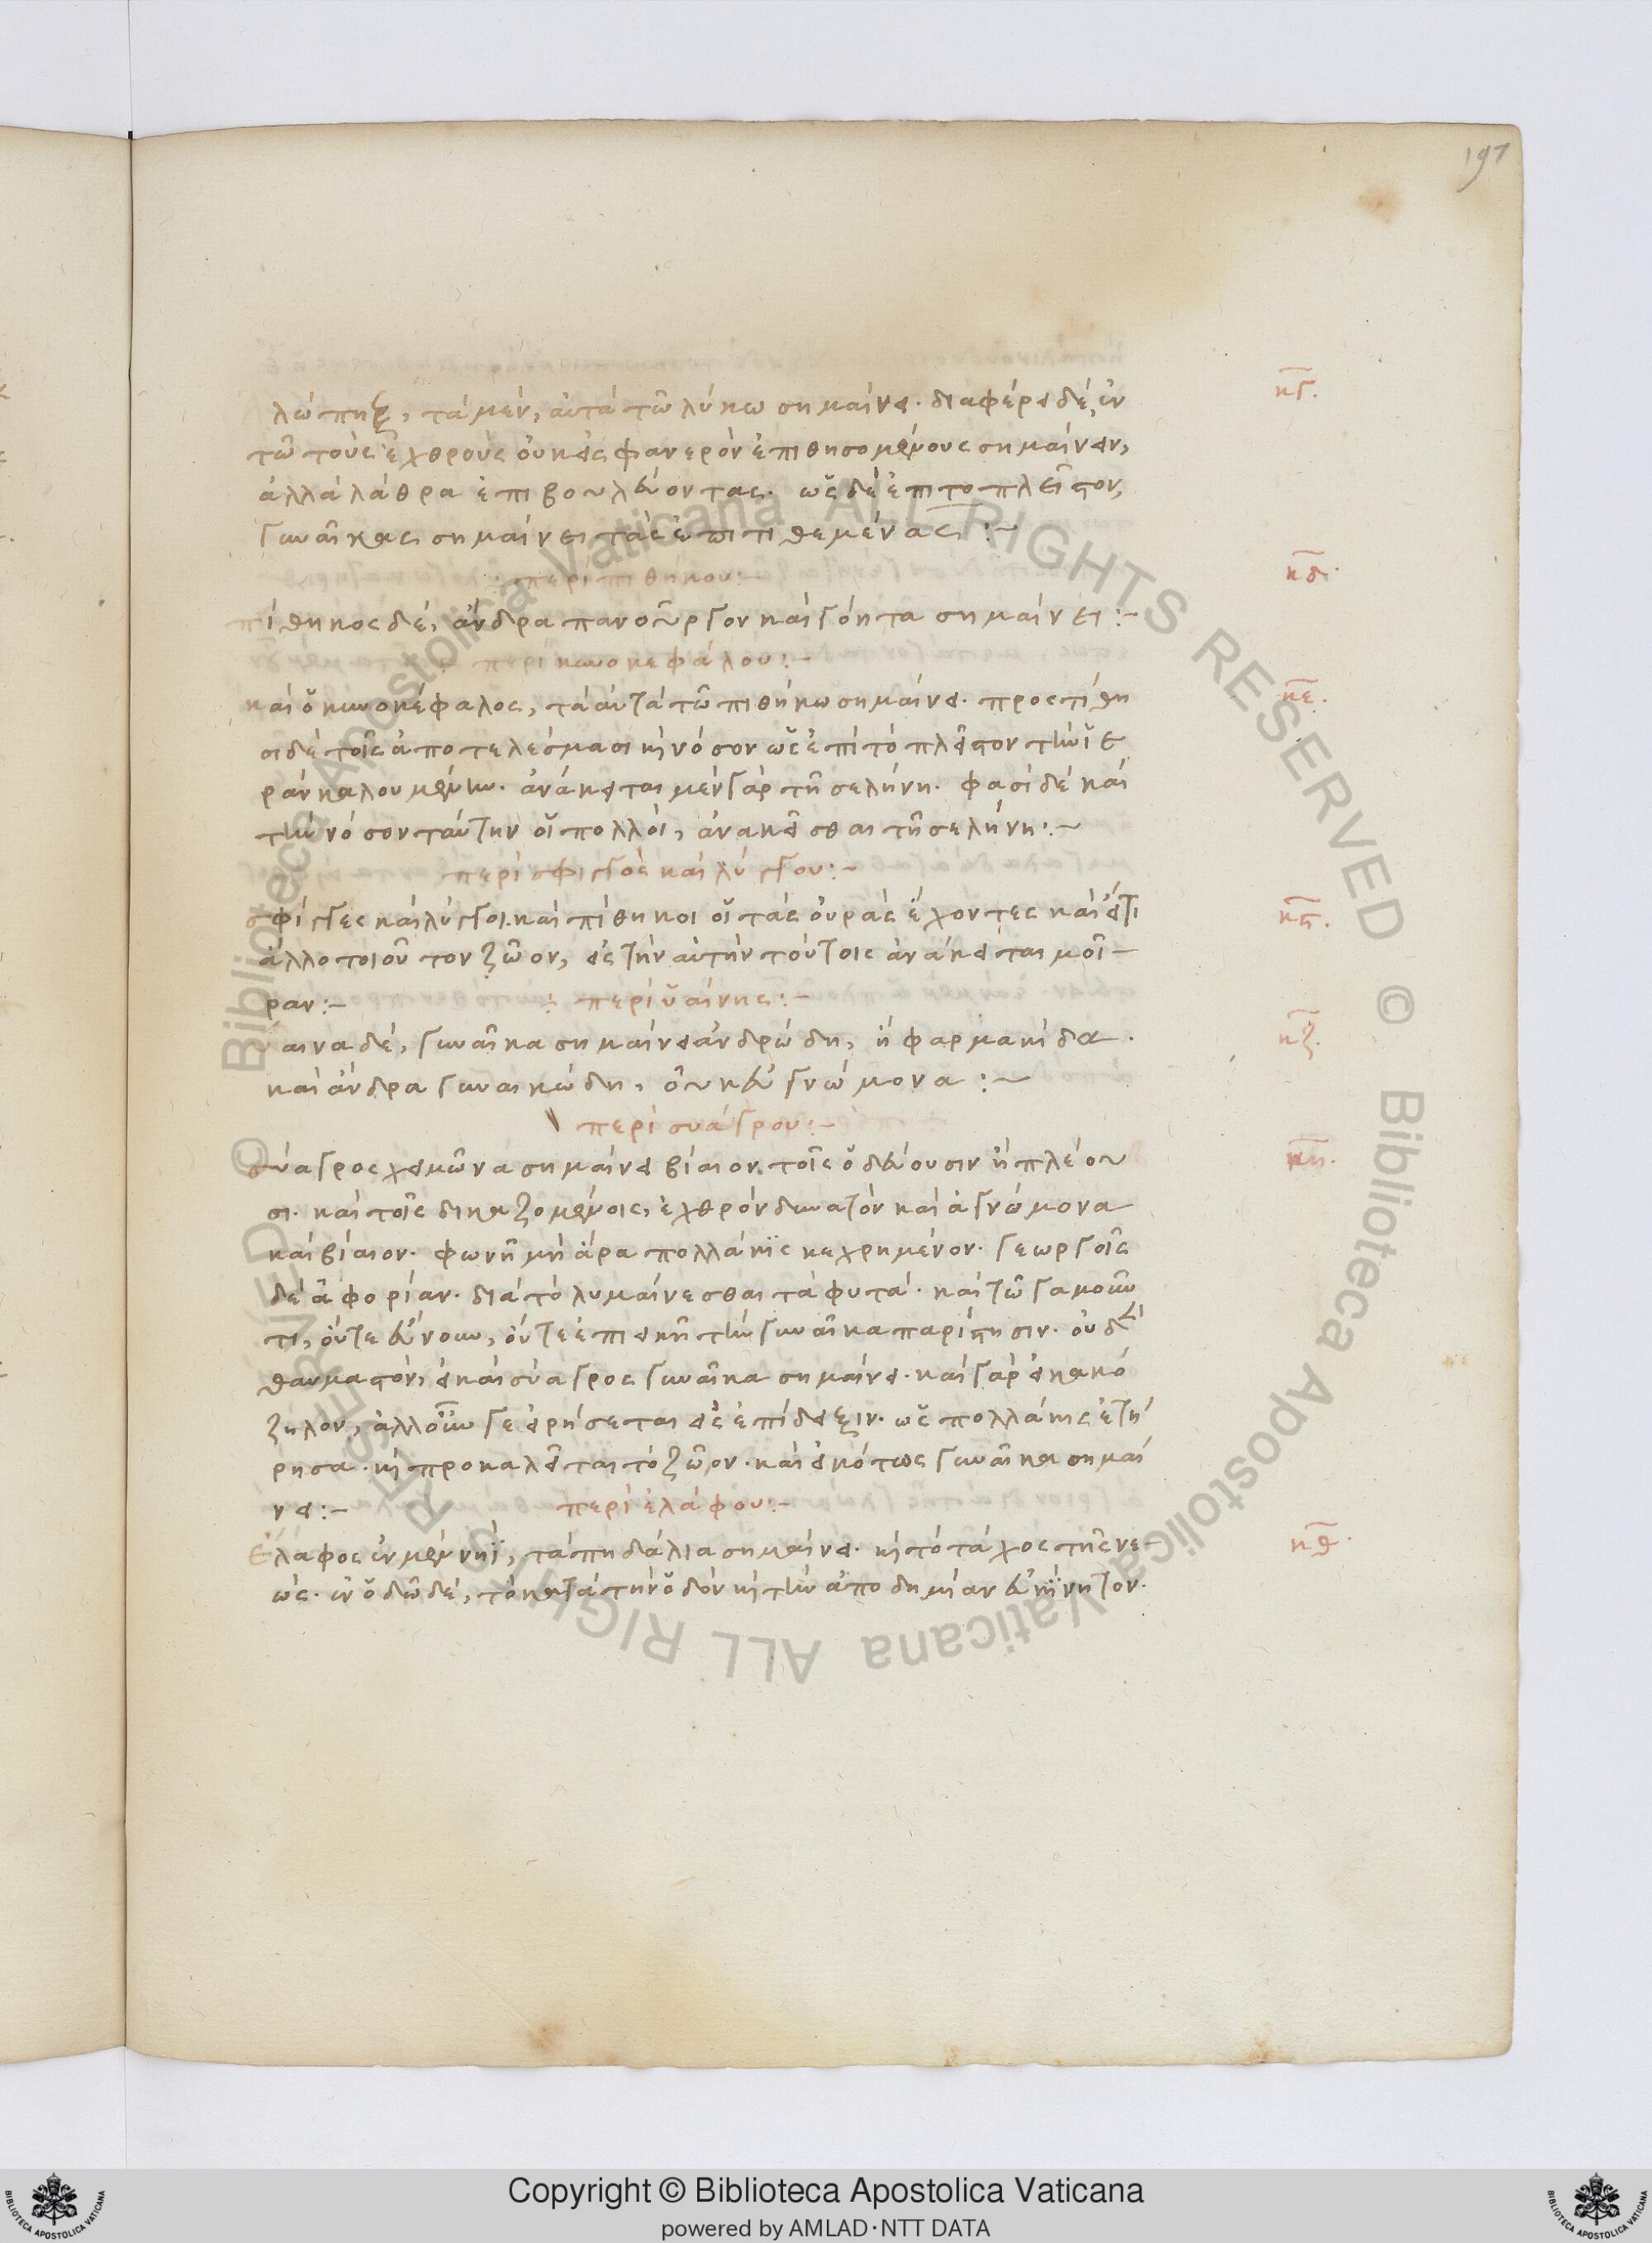 197
λώπηξ, τὰ μὲν, αὐτὰ τῶ λύκω σημαίνει. διαφέρει δὲ, ἐν
κγ.
τῶ τοὺς ἐχθροὺς οὐκ εἰς φανερὸν ἐπιθησομένους σημαίνειν,
ἀλλὰ λάθρα ἐπιβουλεύοντας. ὡς δὲ ἐπιτοπλεῖστον,
γυναῖκας σημαίνει τὰς ἐπιτιθεμένας :~
περὶ πιθήκου:~
κδ.
πίθηκος δὲ, ἄνδρα πανοῦργον καὶ γόητα σημαίνει :~
περὶ κυνοκεφάλου:~
καὶ ὁ κυνοκέφαλος, τὰ αὐτὰ τῶ πιθήκω σημαίνει. προστίθη
κε.
σι δὲ τοῖς ἀποτελέσμασι κὴ νόσον ὡς ἐπὶ τὸ πλεῖστον τὴν ἱε
ρὰν καλουμένην. ἀνάκειται μὲν γὰρ τῆ σελήνη. φασὶ δὲ καὶ
τὴν νόσον ταύτην οἱ πολλοὶ, ἀνακεῖσθαι τῆ σελήνη:~
περὶ σφιγγὸς καὶ λύγγου:~
σφίγγες καὶ λύγγοι. καὶ πίθηκοι οἱ τὰς οὐρὰς ἔχοντες καὶ εἴτι
κς.
ἄλλο τοιοῦτον ζῶον, εἰς τὴν αὐτὴν τούτοις ἀνάκειται μοῖ-
ραν:~ περὶ ὑαίνης:~
ὕαινα δὲ, γυναῖκα σημαίνει ἀνδρώδη, ἢ φαρμακίδα.
κζ.
καὶ ἄνδρα γυναικώδη, οὐκ εὐγνώμονα :~
περὶ συάγρου:~
σύαγρος χειμῶνα σημαίνει βίαιον. τοῖς ὁδεύουσιν ἢ πλέου
κη.
σι. καὶ τοῖς δικαζομένοις, ἐχθρὸν δυνατὸν καὶ ἀγνώμονα
καὶ βίαιον. φωνῆ μὴ ἄρα πολλάκις κεχρημένον. γεωργοῖς
δὲ ἀφορίαν. διὰ τὸ λυμαίνεσθαι τὰ φυτά. καὶ τῶ γαμοῦν
τι, οὔτε εὔνουν, οὔτε ἐπιεικῆ τὴν γυναῖκα παρίστησιν. οὐδὲ
θαυμαστὸν, εἰ καὶ σύαγρος γυναῖκα σημαίνει. καὶ γὰρ εἰ κακό
ζηλον, ἀλλ' οὖν γε εἰρήσεται εἰς ἐπίδειξιν. ὡς πολλάκις ἐτή
ρησα. κὴ προκαλεῖται τὸ ζῶον. καὶ εἰκότως γυναῖκα σημαί
νει:~ περὶ ἐλάφου:~
ἔλαφος ἐν μὲν νηῒ, τὰ πηδάλια σημαίνει. κὴ τὸ τάχος τῆς νε-
κθ.
ώς. ἐν ὁδῶ δὲ, τὸ κατὰ τὴν ὁδὸν κὴ τὴν ἀποδημίαν εὐκίνητον.
© Biblioteca Apostolica Vaticana ALL RIGHTS RESERVED © Biblioteca Apostolica Vaticana ALL RIGHTS RESERVED
Copyright © Biblioteca Apostolica Vaticana
powered by AMLAD·NTT DATA
BIBLIOTECA APOSTOLICA VATICANA
BIBLIOTECA APOSTOLICA VATICANA